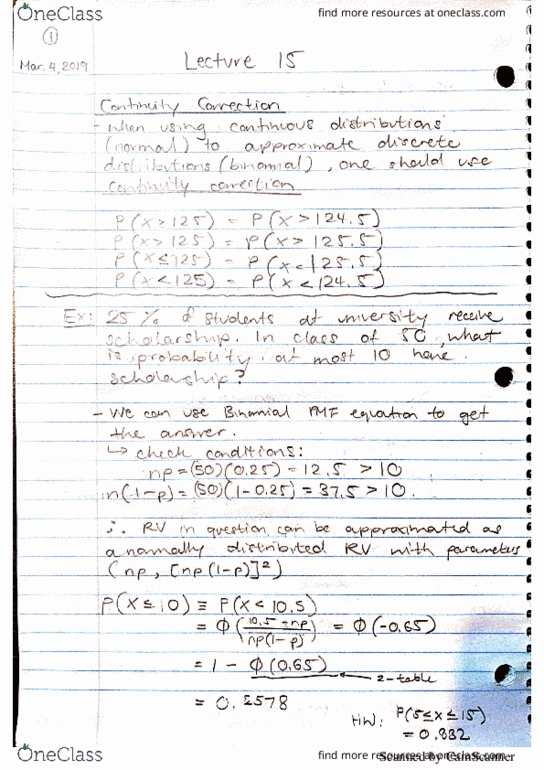 OneClass
find more resources at oneclass.com
1
Mar. 4, 2019
Lecture 15
Continuity Correction
- When using continuous distributions
(normal) to approximate discrete
distributions (binomial), one should use
continuity correction
P(X ≥ 125) = P(X > 124.5)
P(X > 125) = P(X > 125.5)
P(X ≤ 125) = P(X < 125.5)
P(X < 125) = P(X < 124.5)
Ex: 25% of students at university receive
scholarship. In class of 50, what
is probability at most 10 have
scholarship?
- We can use Binomial PMF equation to get
the answer.
↳ check conditions:
np = (50)(0.25) = 12.5 > 10
n(1-p) = (50)(1-0.25) = 37.5 > 10.
∴ RV in question can be approximated as
a normally distributed RV with parameters
(np, [np(1-p)]²)
P(X ≤ 10) ≡ P(X < 10.5)
= Φ(10.5 - np / np(1-p)) = Φ(-0.65)
= 1 - Φ(0.65)
z-table
= 0.2578
HW: P(5 ≤ X ≤ 15)
= 0.832
OneClass
find more resources at oneclass.com
Scanned by CamScanner